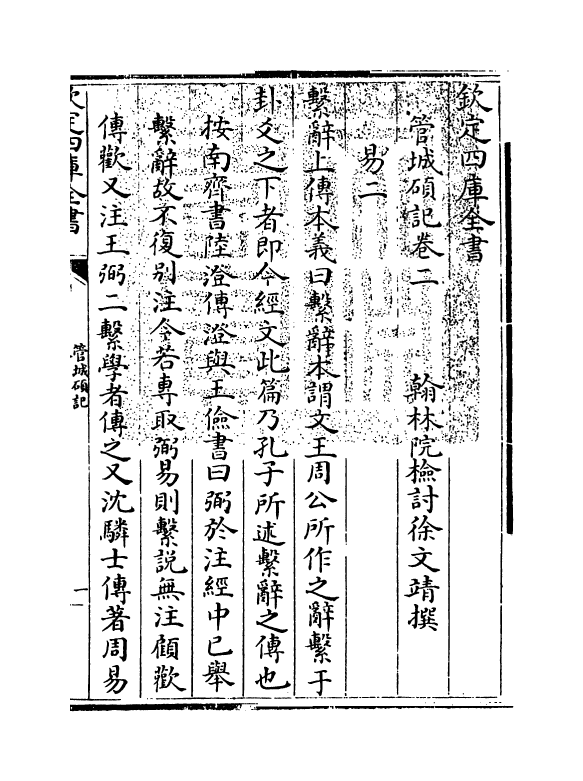 欽定四庫全書
管城碩記卷二　　翰林院檢討徐文靖撰
易二
繫辭上傳本義曰繫辭本謂文王周公所作之辭繫于
卦爻之下者即今經文此篇乃孔子所述繫辭之傳也
按南齊書陸澄傳澄與王儉書曰弼於注經中已舉
繫辭故不復别注今若專取弼易則繫説無注顧歡
傳歡又注王弼二繫學者傳之又沈驎士傳著周易
欽定四庫全書
管城碩記
一